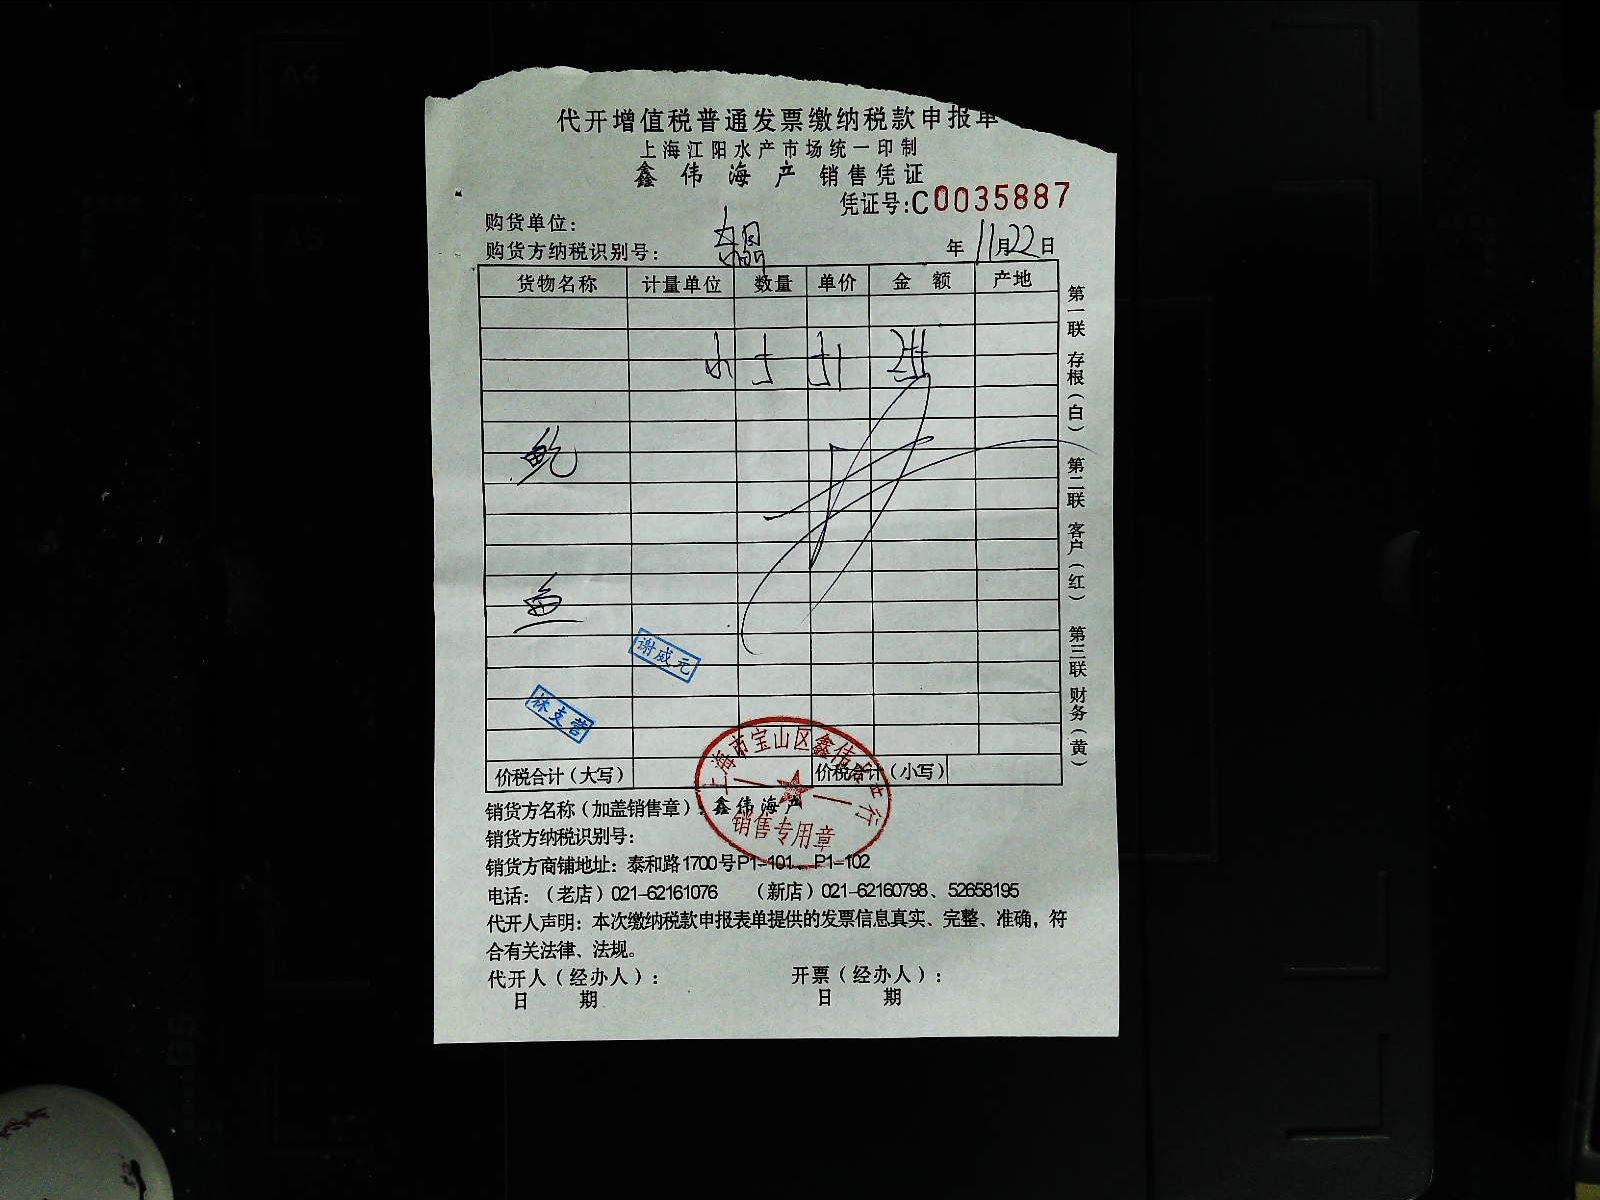 代开增值税普通发票缴纳税款申报单
上海江阳水产市场统一印制
鑫伟海产 销售凭证
凭证号:C0035887
购货单位:
购货方纳税识别号: 年 11月22日
货物名称 计量单位 数量 单价 金额 产地
鲍
鱼
谢成元
林支营
价税合计(大写) 价税合计(小写)
上海市宝山区鑫伟海产行
销售专用章
销货方名称(加盖销售章):鑫伟海产
销货方纳税识别号:
销货方商铺地址:泰和路1700号P1-101、P1-102
电话:(老店)021-62161076 (新店)021-62160798、52658195
代开人声明:本次缴纳税款申报表单提供的发票信息真实、完整、准确,符
合有关法律、法规。
代开人(经办人): 开票(经办人):
日 期 日 期
第一联 存根(白) 第二联 客户(红) 第三联 财务(黄)